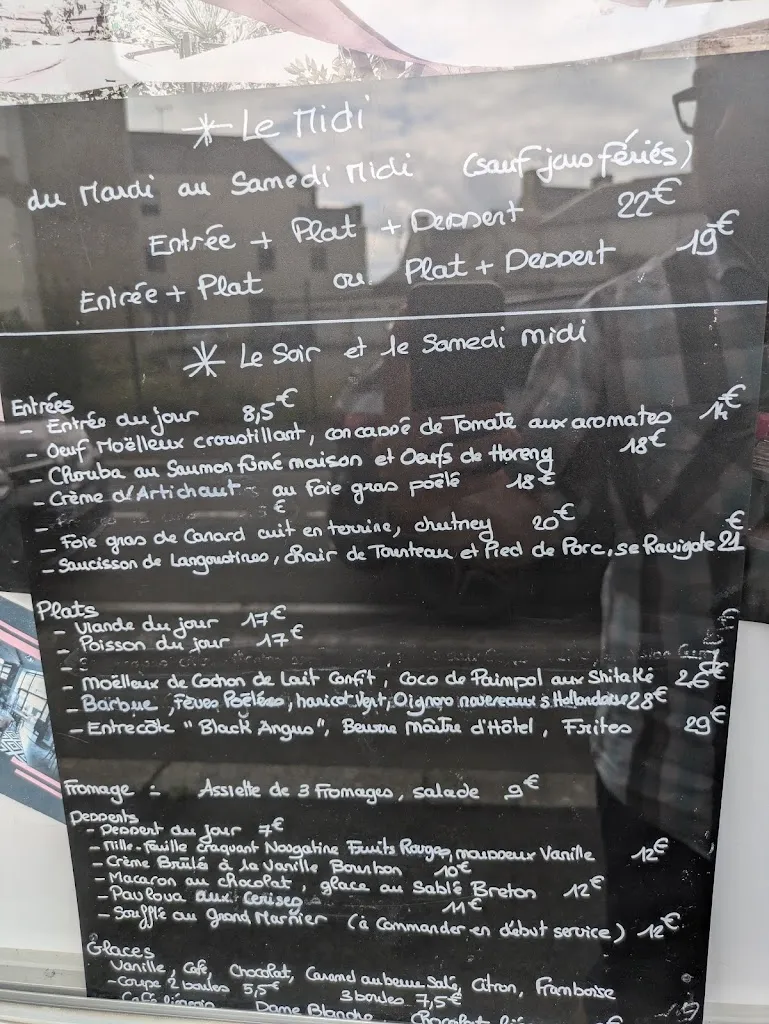 Le Midi
du Mardi au Samedi Midi (sauf jours fériés)
Entrée + Plat + Dessert 22€
Entrée + Plat ou Plat + Dessert 19€
Le Soir et le Samedi midi
Entrées
- Entrée du jour 8,5€
- Oeuf Moëlleux croustillant, concassé de Tomate aux aromates 14€
- Chouba au Saumon fumé maison et Oeufs de Hareng 18€
- Crème d'Artichaut au Foie gras poêlé 18€
- €
- Foie gras de Canard cuit en terrine, chutney 20€
- Saucisson de Langoustines, chair de Tourteau et Pied de Porc, sce Ravigote 21€
Plats
- Viande du jour 17€
- Poisson du jour 17€
- Moëlleux de Cochon de Lait Confit, Coco de Paimpol aux Shitaké 26€
- Barbue, Fèves Poêlées, haricot Vert, Oignon nouveaux s Hollandaise 28€
- Entrecôte "Black Angus", Beurre Maître d'Hôtel, Frites 29€
Fromage : Assiette de 3 Fromages, salade 9€
Desserts
- Dessert du jour 7€
- Mille-feuille craquant Nougatine Fruits Rouges, mousseux Vanille 12€
- Crème Brûlé à la Vanille Bourbon 10€
- Macaron au chocolat, glace au Sablé Breton 12€
- Pavlova aux Cerises 11€
- Soufflé au Grand Marnier (à Commander en début service) 12€
Glaces
Vanille, Café, Chocolat, Caramel au beurre Salé, Citron, Framboise
- Coupe 2 boules 5,5€ 3 boules 7,5€
Café liégeois Dame Blanche Chocolat